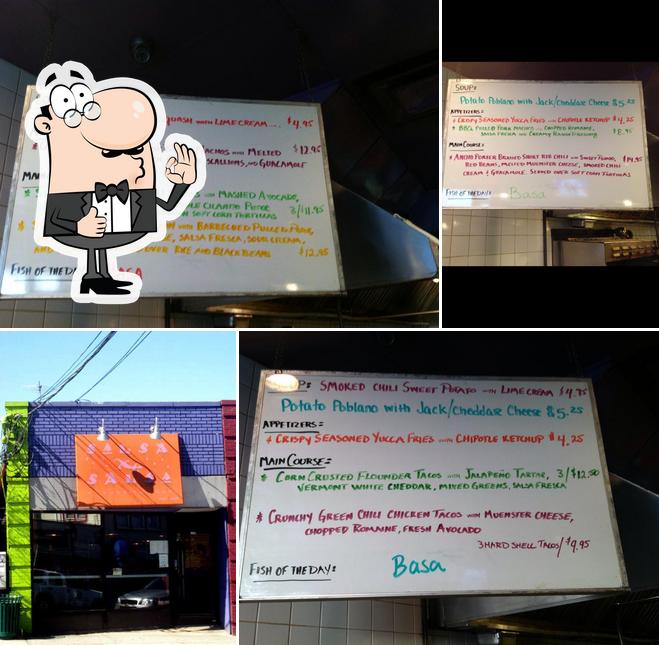 UASH WITH LIME CREAM.... $4.95
ACHOS WITH MELTED $12.95
SCALLIONS, AND GUACAMOLE
MA
WITH MASHED AVOCADO,
LE CILANTRO PUREE
SOFT CORN TORTILLAS 3/11.95
WITH BARBECUED PULLED PORK,
SALSA FRESCA, SOUR CREAM,
AND OVER RICE AND BLACK BEANS $12.95
FISH OF THE DA
SOUP:
Potato Poblano with Jack/cheddar Cheese $5.25
APPETIZERS:
CRISPY SEASONED YUCCA FRIES WITH CHIPOTLE KETCHUP $4.25
BBQ PULLED PORK NACHOS WITH CHOPPED ROMAINE, $8.95
SALSA FRESCA AND CREAMY RANCH DRESSING
MAIN COURSE:
ANCHO PORTER BRAISED SHORT RIB CHILI WITH SWEET POTATO, $14.95
RED BEANS, MELTED MUENSTER CHEESE, SMOKED CHILI
CREAM & GUACAMOLE. SERVED OVER SOFT CORN TORTILLAS
FISH OF THE DAY: Basa
SALSA
SALSA
P: SMOKED CHILI SWEET POTATO WITH LIME CREAM $4.75
Potato Poblano with Jack/Cheddar Cheese $5.25
APPETIZERS:
CRISPY SEASONED YUCCA FRIES WITH CHIPOTLE KETCHUP $4.25
MAIN COURSE:
* CORN CRUSTED FLOUNDER TACOS WITH JALAPEÑO TARTAR, 3/$12.50
VERMONT WHITE CHEDDAR, MIXED GREENS, SALSA FRESCA
* CRUNCHY GREEN CHILI CHICKEN TACOS WITH MUENSTER CHEESE,
CHOPPED ROMAINE, FRESH AVOCADO
3 HARD SHELL TACOS/$9.95
FISH OF THE DAY: Basa